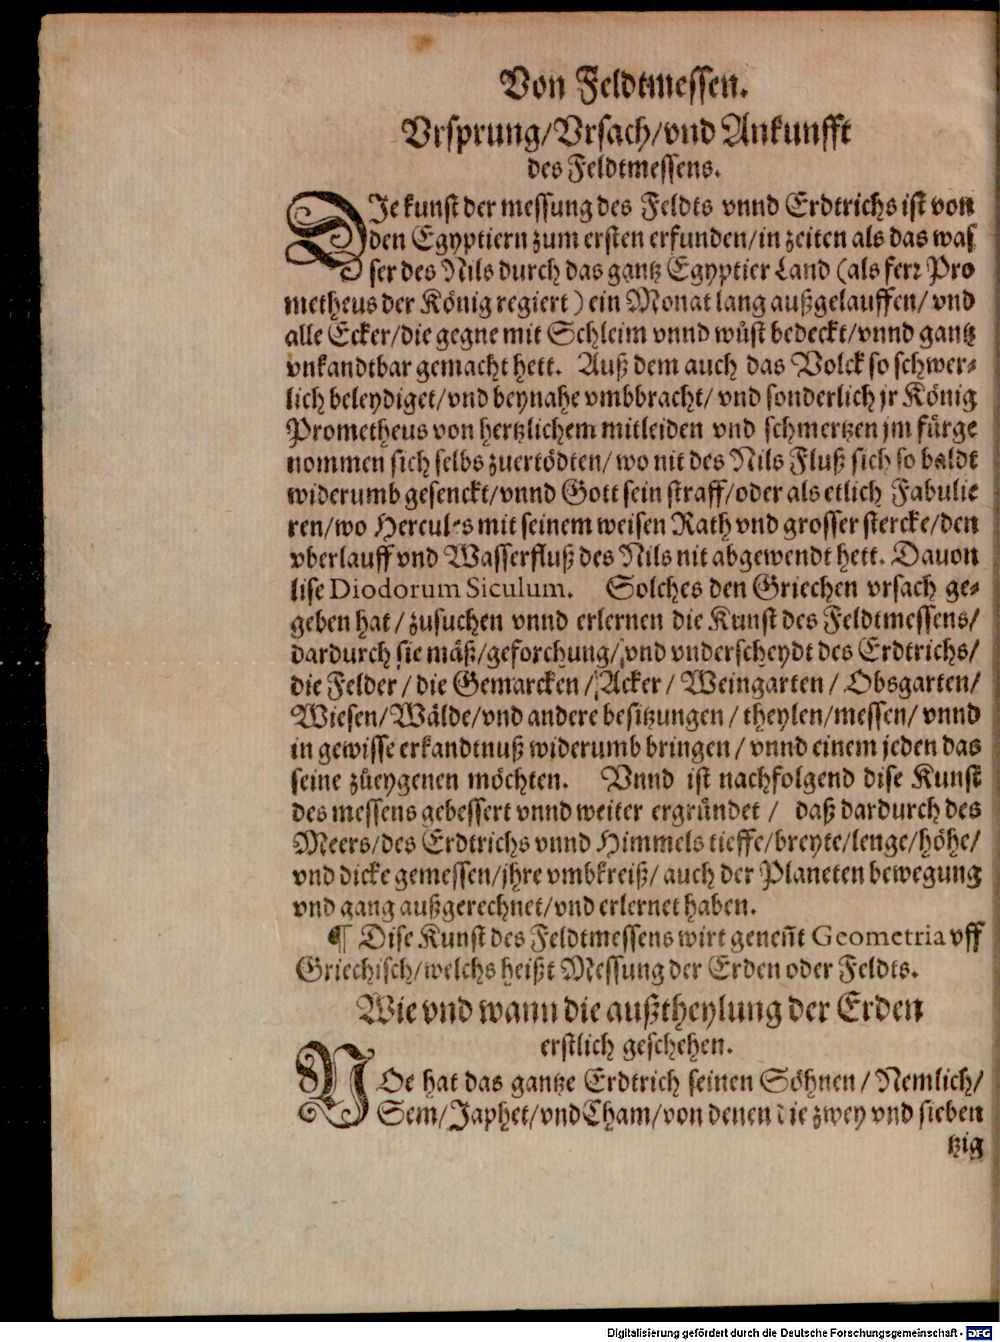 Von Feldtmessen.
Vrsprung/Vrsach/vnd Ankunfft
des Feldtmessens.
DIe kunst der messung des Feldts vnnd Erdtrichs ist von
den Egyptiern zum ersten erfunden/in zeiten als das was
ser des Nils durch das gantz Egyptier Land (als ferr Pro
metheus der König regiert) ein Monat lang außgelauffen/ vnd
alle Ecker/die gegne mit Schleim vnnd wüst bedeckt/vnnd gantz
vnkandtbar gemacht hett. Auß dem auch das Volck so schwer-
lich beleydiget/vnd beynahe vmbbracht/ vnd sonderlich jr König
Prometheus von hertzlichem mitleiden vnd schmertzen jm fürge
nommen sich selbs zuertödten/ wo nit des Nils Fluß sich so baldt
widerumb gesenckt/vnnd Gott sein straff/oder als etlich Fabulie
ren/wo Hercules mit seinem weisen Rath vnd grosser stercke/den
vberlauff vnd Wasserfluß des Nils nit abgewendt hett. Dauon
lise Diodorum Siculum. Solches den Griechen vrsach ge-
geben hat / zusuchen vnnd erlernen die Kunst des Feldtmessens/
dardurch sie mäß/geforchung/ vnd vnderscheydt des Erdtrichs/
die Felder / die Gemarcken / Acker / Weingarten / Obsgarten/
Wiesen/ Wälde/vnd andere besitzungen / theylen/messen/ vnnd
in gewisse erkandtnuß widerumb bringen / vnnd einem jeden das
seine zůeygenen möchten. Vnnd ist nachfolgend dise Kunst
des messens gebessert vnnd weiter ergründet / daß dardurch des
Meers/des Erdtrichs vnnd Himmels tieffe/breyte/lenge/höhe/
vnd dicke gemessen/jhre vmbkreiß/ auch der Planeten bewegung
vnd gang außgerechnet/vnd erlernet haben.
¶ Dise Kunst des Feldtmessens wirt geneñt Geometria vff
Griechisch/welchs heißt Messung der Erden oder Feldts.
Wie vnd wann die außtheylung der Erden
erstlich geschehen.
NOe hat das gantze Erdtrich seinen Söhnen / Nemlich/
Sem/Japhet/vnd Cham/von denen die zwey vnd sieben
tzig
Digitalisierung gefördert durch die Deutsche Forschungsgemeinschaft - DFG